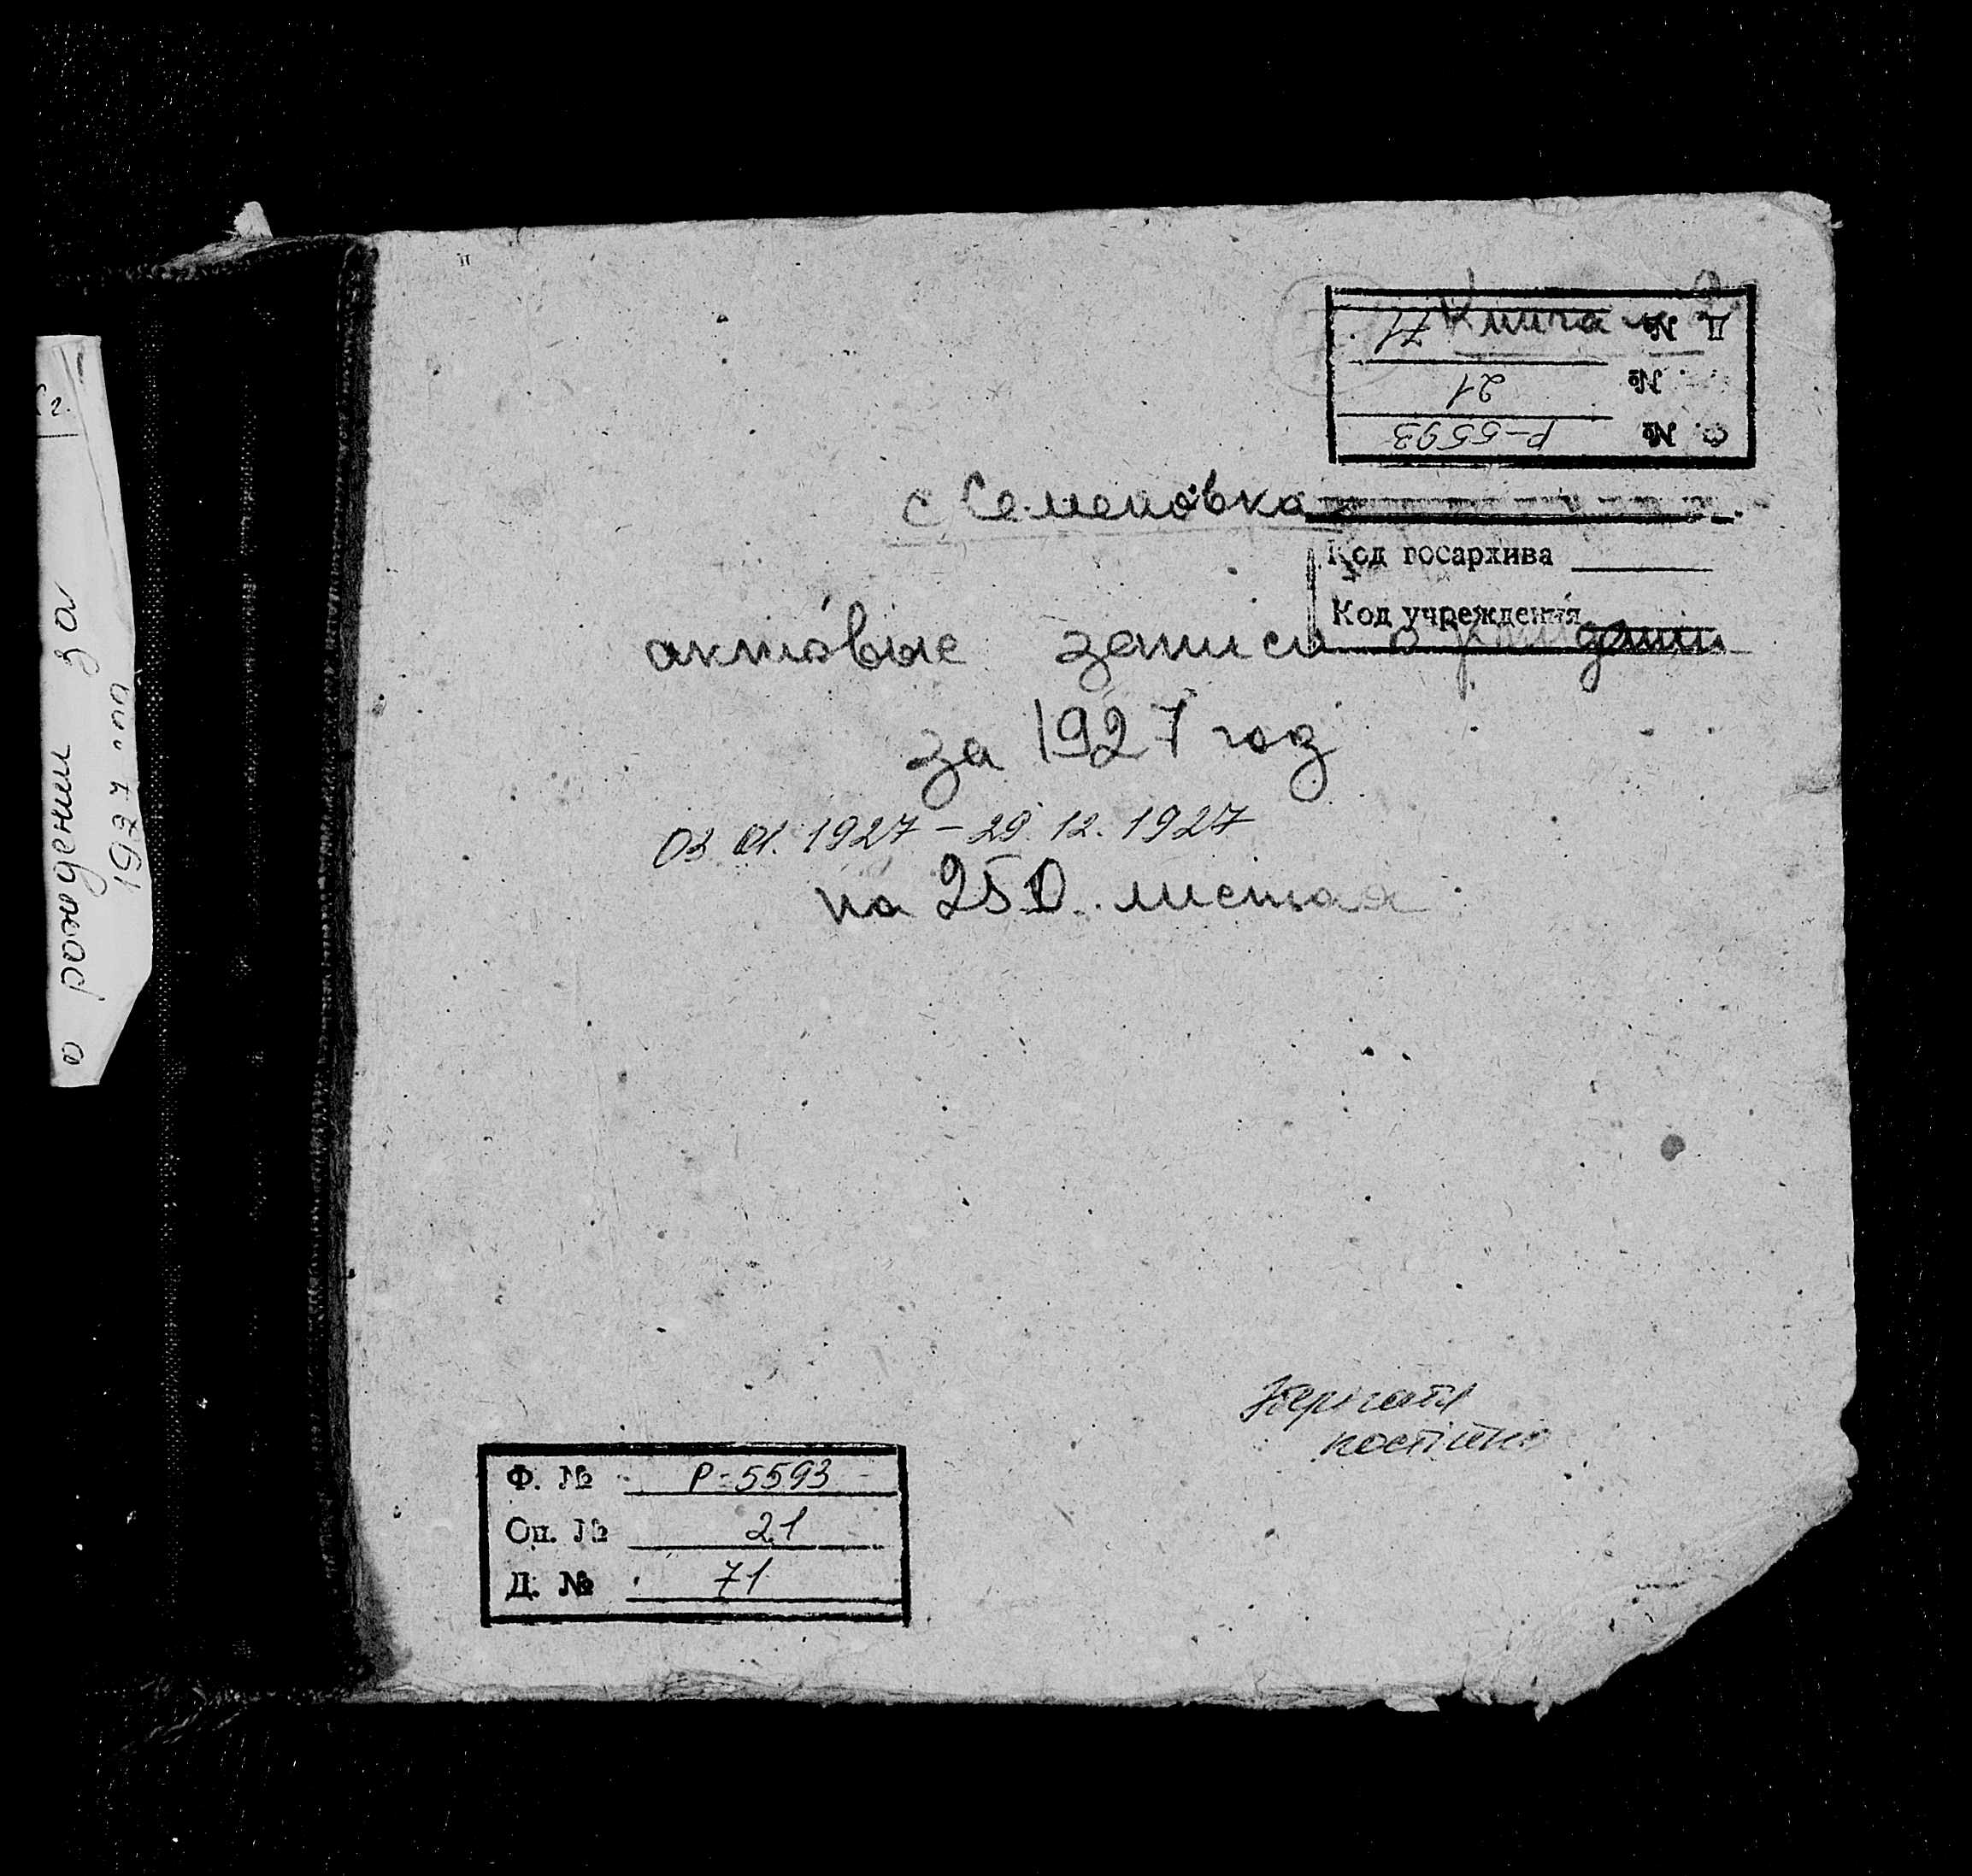 Книга
Д. № 71
№ 21
Ф. № Р-5593
с Семеновка
Код госархива
Код учреждения
актовые записи о рождении
за 1927 год
03 01. 1927 – 29. 12. 1927
на 250 листах
постійно
Ф. № Р-5593
Оп. № 21
Д. № 71
г.
о рождении за
1927